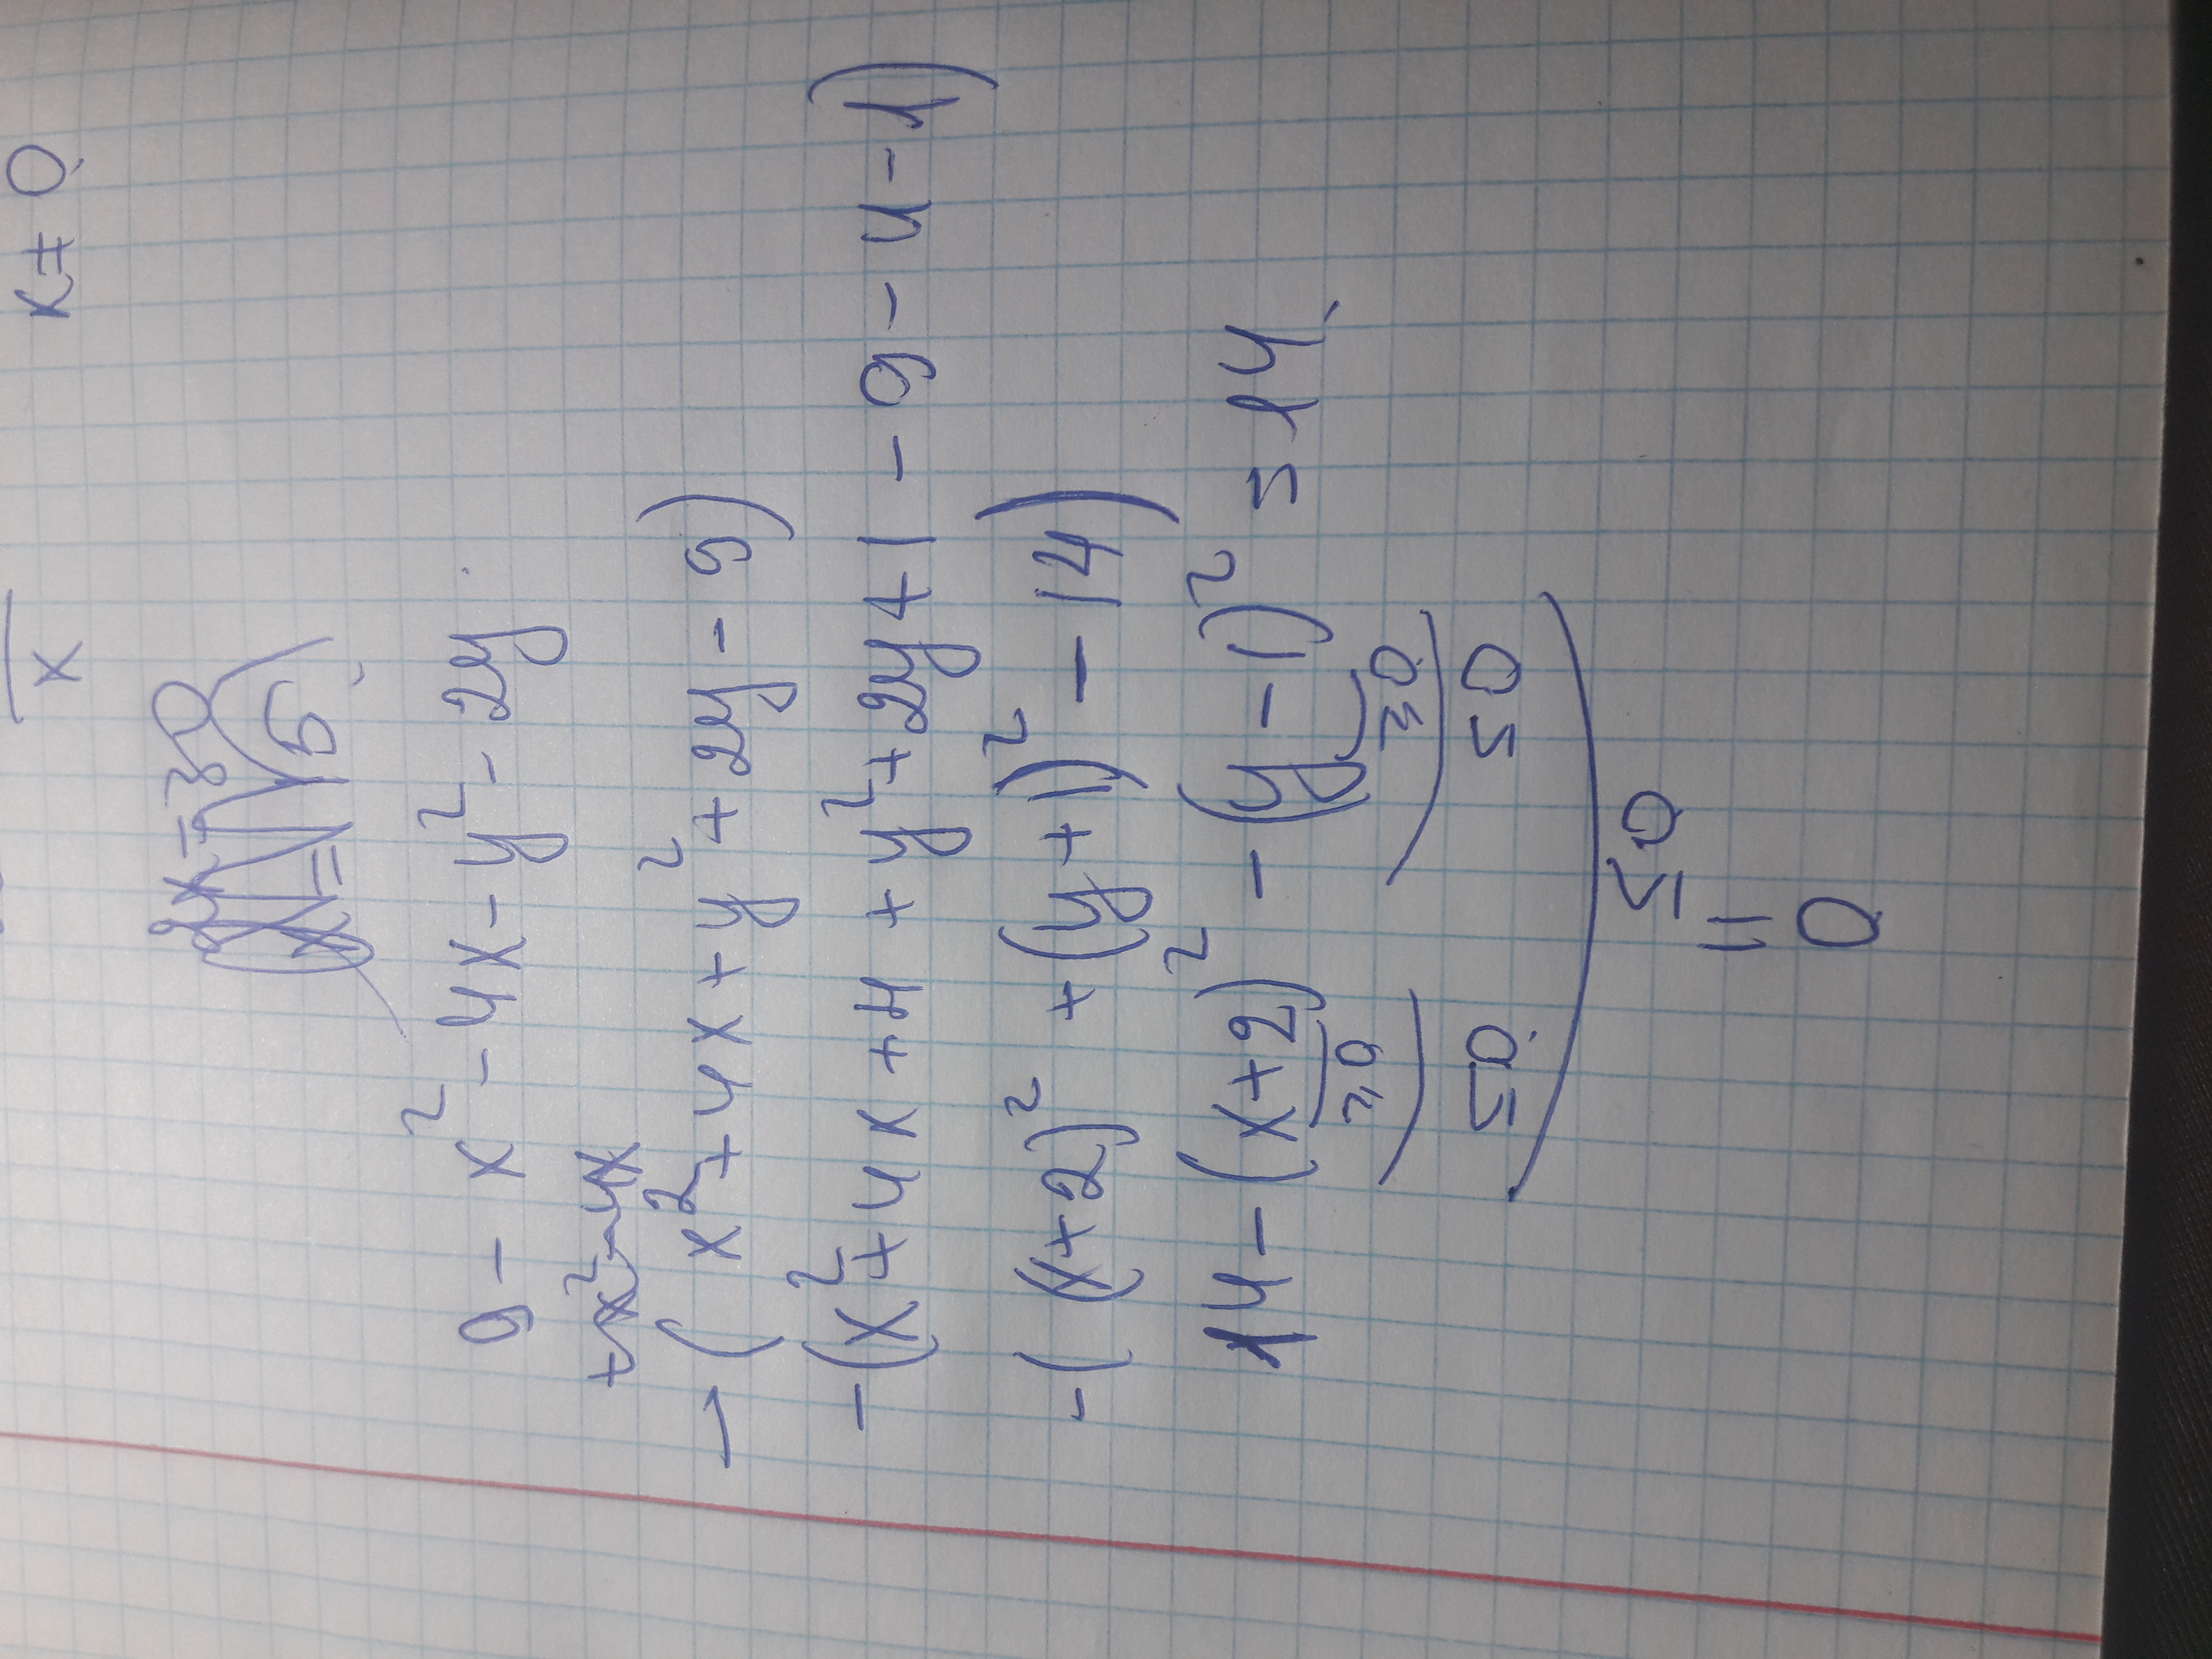 x x ≠ 0
9 - x² - 4x - y² - 2y
+x² - 4x
- (x² + 4x + y² + 2y - 9)
- (x² + 4x + 4 + y² + 2y + 1 - 9 - 4 - 1)
- ( (x+2)² + (y+1)² - 14)
14 - (x+2)² - (y-1)² ≤ 14
≥0 ≥0
≤0 ≤0
≤0
=
0